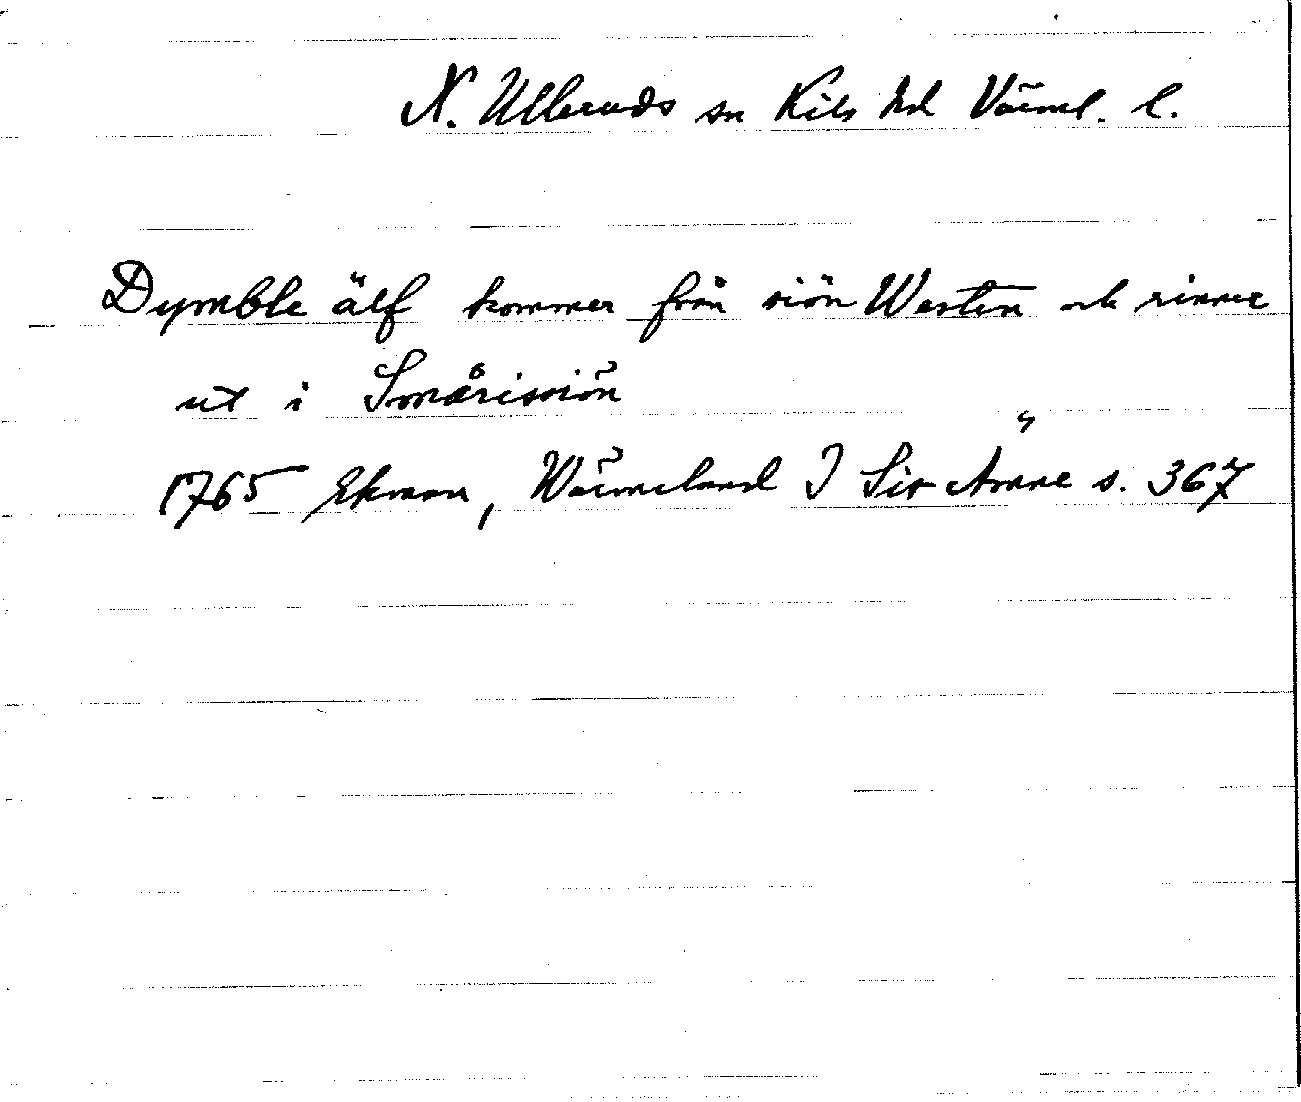 N. Ulleruds sn Kils hd Värml. l.
Dymble älf kommer från siön Westen och rinner
ut i Smårissiön
1765 Ekman, Wärmeland I s. 367